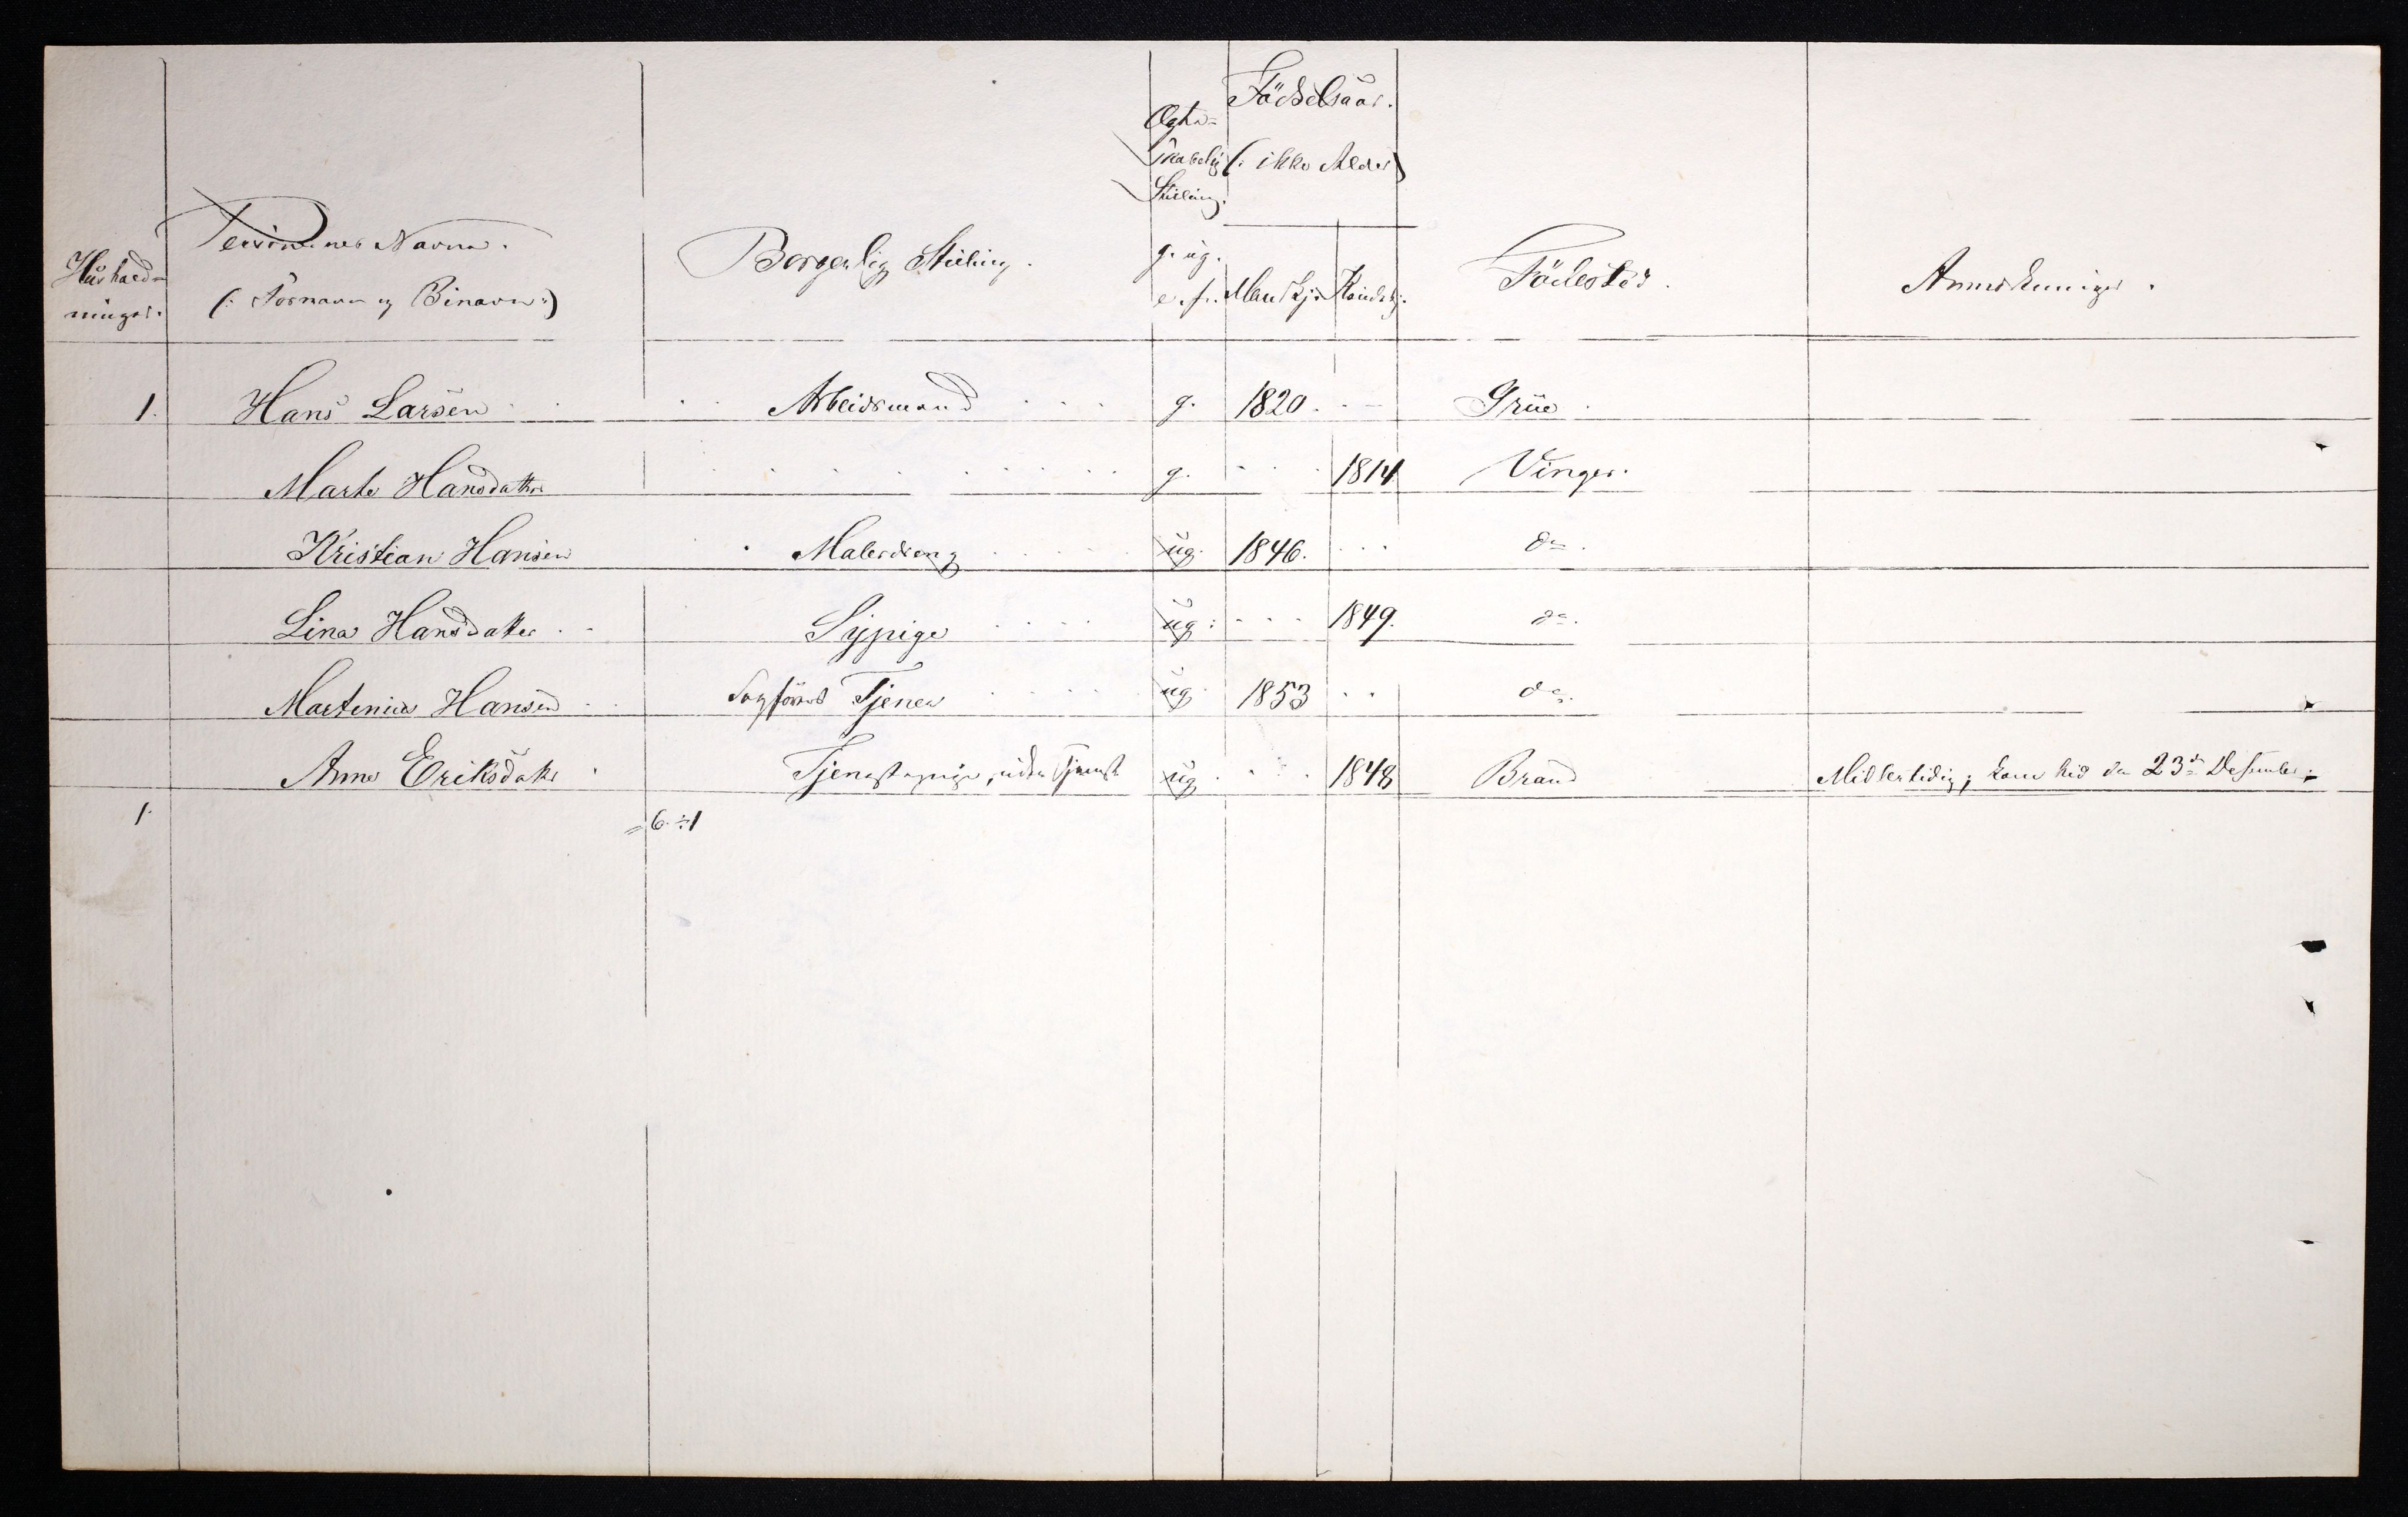 Hushold-
ninger.
Personernes Navne.
(: Fornavn og Binavn :)
Borgerlig Stilling.
Ægte-
skabelig
Stilling.
g. ug.
e. f.
Födselsaar.
(: ikke Alder)
Mandkjö Kvindekj.
Födested.
Anmerkninger.
1. Hans Larsen Arbeidsmand g. 1820 Grue
Marte Hansdatter g. 1814 Vinger.
Kristian Hansen Malerdreng ug. 1846. do.
Lina Hansdatter Sypige ug: 1849. do.
Martinius Hansen Sagförers Tjener ug. 1853 do.
Anne Eriksdatter Tjenestepige, uden Tjeneste ug. 1848 Brand Midlertidig; kom hid den 23de Desember.
1. = 6 ÷ 1